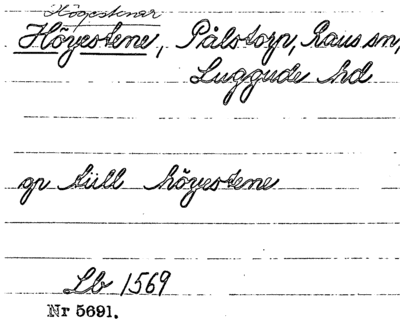 Högestenar
Höyestene, Pålstorp, Raus sn,
Luggude hd
gp till höyestene
Lb 1569
Nr 5691.